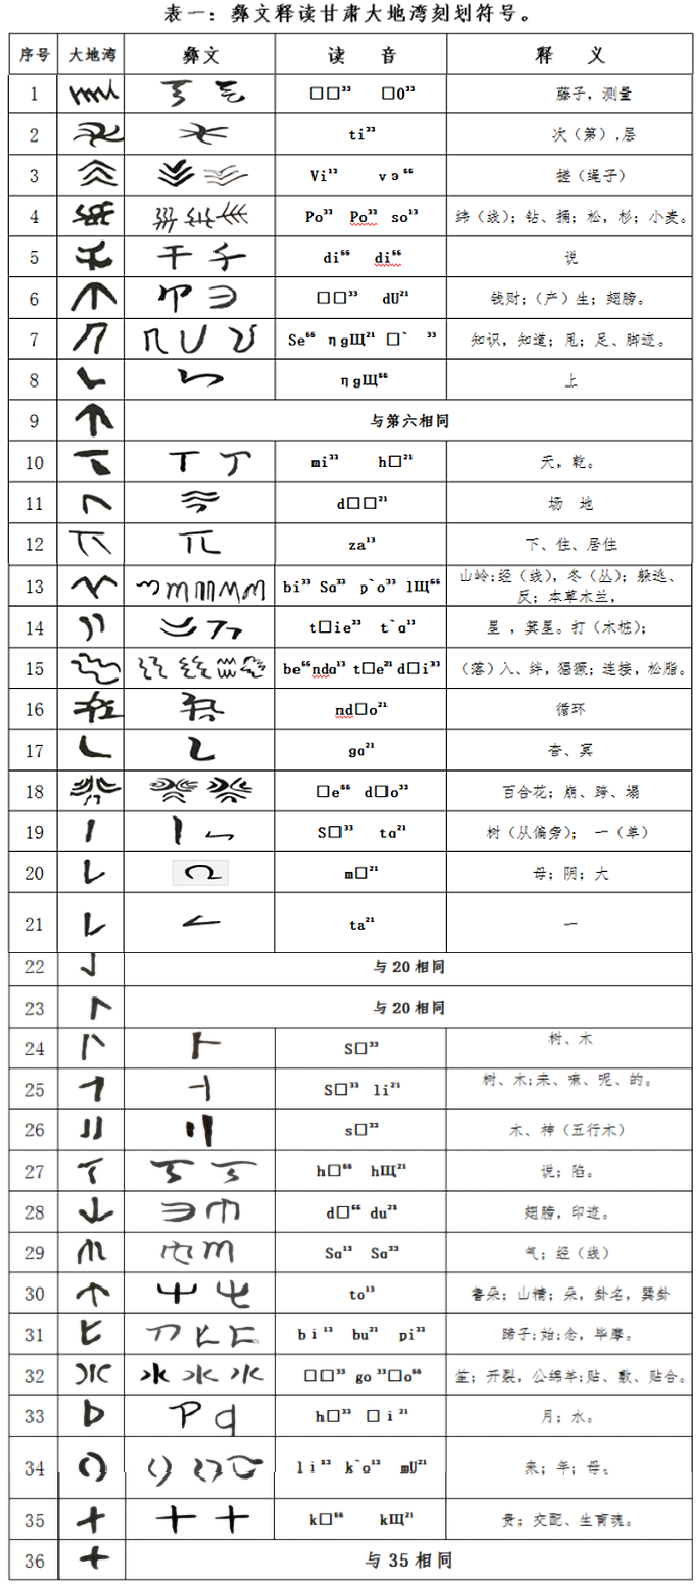 表一：彝文释读甘肃大地湾刻划符号。
序号 大地湾 彝文 读 音 释 义
1 □□³³ □0³³ 藤子，测量
2 ti³³ 次（第），层
3 Vi¹³ vэ⁵⁵ 搓（绳子）
4 Po³³ Po³³ so¹³ 纬（线）；钻、捅；松，杉；小麦。
5 di⁵⁵ di⁵⁵ 说
6 □□³³ dU²¹ 钱财；（产）生；翅膀。
7 Se⁵⁵ ηgЩ²¹ □` ³³ 知识，知道；甩；足、脚迹。
8 ηgЩ⁵⁵ 上
9 与第六相同
10 mi³³ h□²¹ 天，乾。
11 d□□²¹ 场 地
12 za¹³ 下、住、居住
13 bi³³ Sɑ³³ p`o³³ lЩ⁵⁵ 山岭;经（线），冬（丛）；躲逃、
反；本草木兰，
14 t□ie³³ t`ɑ¹³ 星 ，箕星。打（木桩）；
15 be⁵⁵ndɑ¹³ t□e²¹ d□i³³ （落）入、绊，猖獗；连接，松脂。
16 nd□o²¹ 循环
17 gɑ²¹ 杳、冥
18 □e⁵⁵ d□lo³³ 百合花；崩、垮、塌
19 S□³³ tɑ²¹ 树（从偏旁）； 一（单）
20 m□²¹ 母；阴；大
21 ta²¹ 一
22 与 20 相同
23 与 20 相同
24 S□³³ 树、木
25 S□³³ li²¹ 树、木;来、嘛、呢、的。
26 s□³³ 木、神（五行木）
27 h□⁵⁵ hЩ²¹ 说；陷。
28 d□⁵⁵ du²¹ 翅膀，印迹。
29 Sɑ¹³ Sɑ³³ 气；经（线）
30 to¹³ 鲁朵；山精；朵，卦名，巽卦
31 bi¹³ bu²¹ pi³³ 蹄子;始;念，毕摩。
32 □□³³ go³³□o⁵⁵ 笙；开裂，公绵羊;贴、敷、贴合。
33 h□³³ □i²¹ 月；水。
34 li³³ k`o¹³ mU²¹ 来；年；母。
35 k□⁵⁵ kЩ²¹ 贵；交配、生育魂。
36 与 35 相同